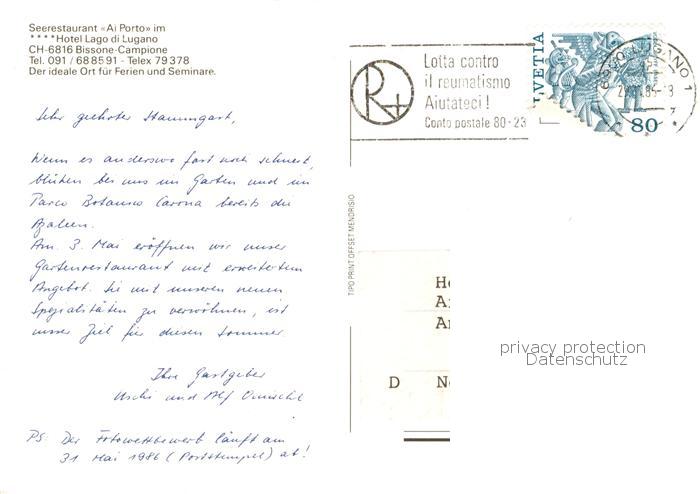 Seerestaurant «Ai Porto» im
****Hotel Lago di Lugano
CH-6816 Bissone-Campione
Tel. 091 / 68 85 91 - Telex 79 378
Der ideale Ort für Ferien und Seminare.
Sehr geehrter Stammgast,
Wenn es anderswo fast noch schneit,
blühen bei uns im Garten und im
Parco Botanico Carona bereits die
Azaleen.
Am 3. Mai eröffnen wir unser
Gartenrestaurant mit erweitertem
Angebot. Sie mit unseren neuen
Spezialitäten zu verwöhnen, ist
unser Ziel für diesen Sommer.
Ihre Gastgeber
Uschi und Alf
PS: Der Fotowettbewerb läuft am
31. Mai 1986 (Poststempel) ab!
TIPO PRINT OFFSET MENDRISIO
R+
Lotta contro
il reumatismo
Aiutateci!
Conto postale 80-23
HELVETIA
80
LUGANO 1
H
A
A
D N
privacy protection
Datenschutz